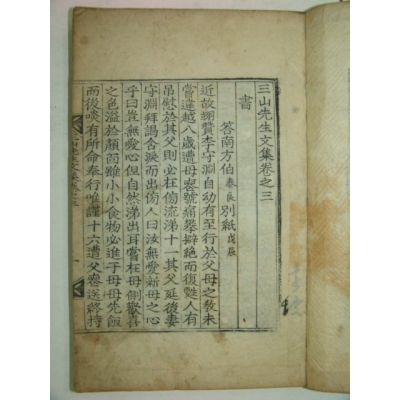 三山先生文集卷之三
書
答南方伯泰良別紙戊辰
近故翊贊李守淵自幼有至行於父母之敎未
嘗違越八歲遭母喪號痛擗絶而復甦人有
吊慰於其父則必在傍流涕十一其父延後妻
守淵拜謁含淚而出傍人曰汝無愛新母之心
乎曰無愛心但自然涕出耳嘗在母側歡喜
之色溢於顔面雖小小食物必進于母母先飯
而後啖有所命奉行唯謹十六遭父喪送終持